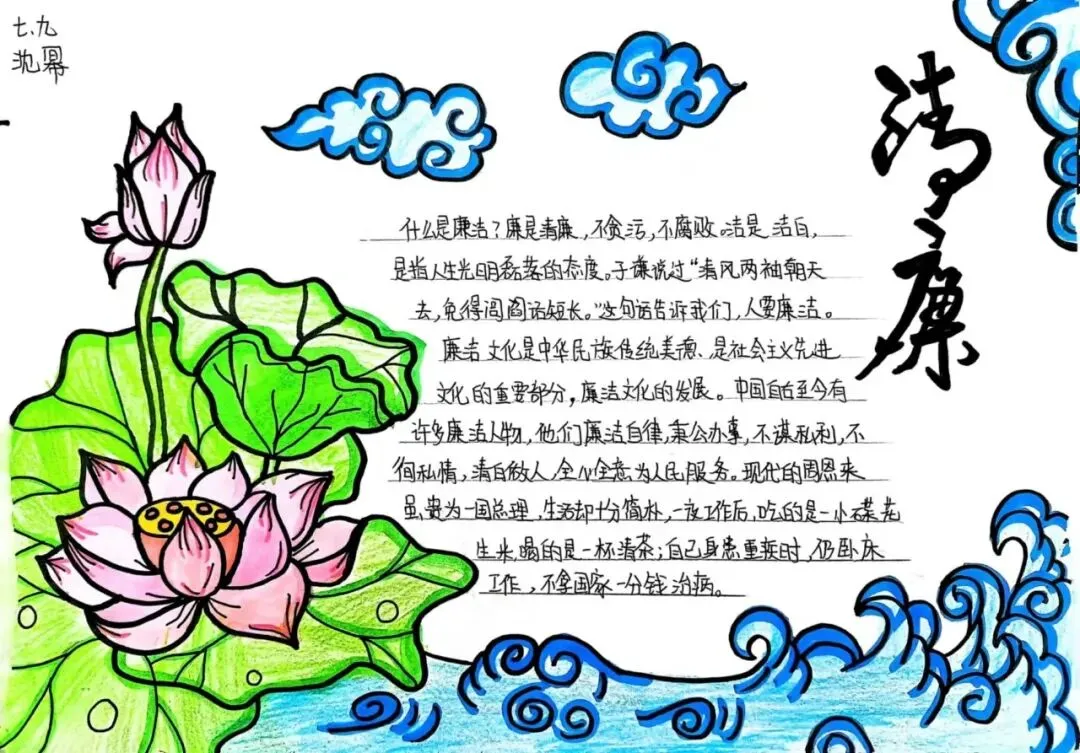 七.九
沈幂
清廉
什么是廉洁？廉是清廉，不贪污，不腐败。洁是洁白，
是指人生光明磊落的态度。于谦说过“清风两袖朝天
去，免得闾阎话短长。”这句话告诉我们，人要廉洁。
廉洁文化是中华民族传统美德、是社会主义先进
文化的重要部分，廉洁文化的发展。中国自古至今有
许多廉洁人物，他们廉洁自律，秉公办事，不谋私利，不
徇私情，清白做人，全心全意为人民服务。现代的周恩来
虽贵为一国总理，生活却十分简朴，一夜工作后，吃的是一小碟花
生米，喝的是一杯清茶；自己身患重疾时，仍卧床
工作，不拿国家一分钱治病。